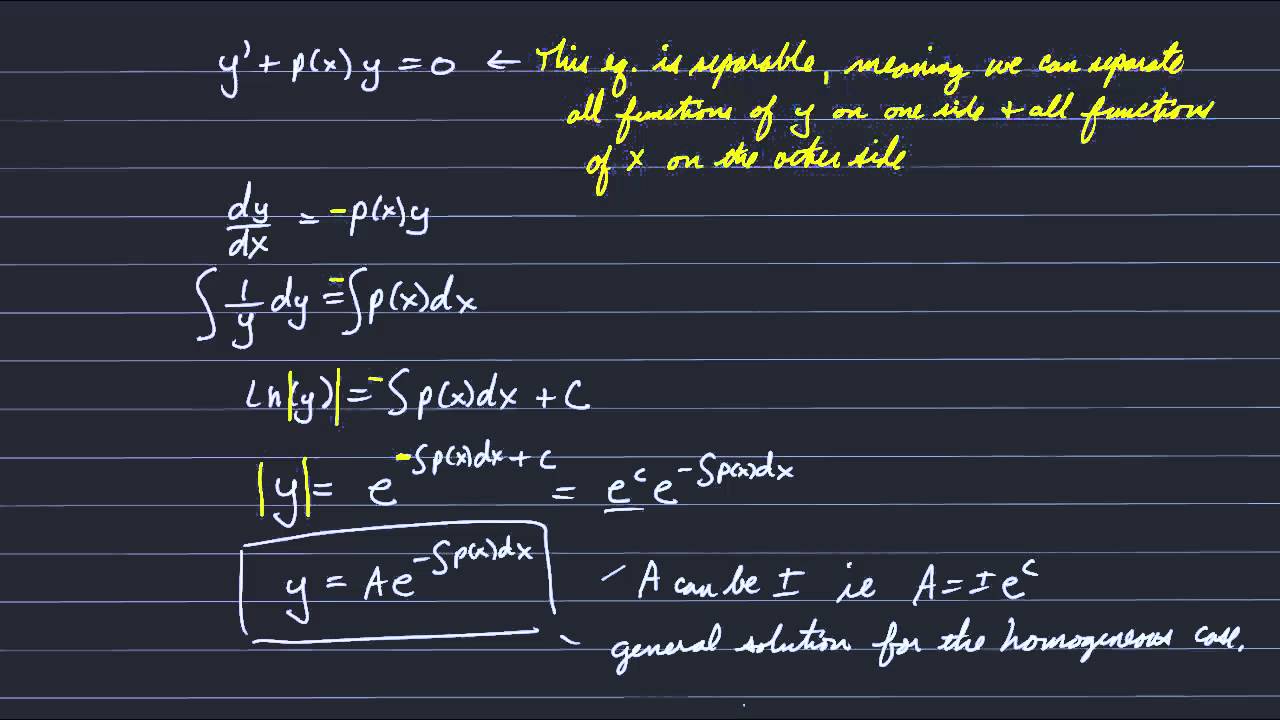 y' + p(x) y = 0 ← This eq. is separable, meaning we can separate
all functions of y on one side + all functions
of x on the other side
dy/dx = -p(x)y
∫ 1/y dy = -∫ p(x)dx
ln|(y)| = -∫ p(x)dx + C
|y| = e^(-∫p(x)dx + c) = e^c e^(-∫p(x)dx)
y = Ae^(-∫p(x)dx)
A can be ± ie A = ±e^c
general solution for the homogeneous case.